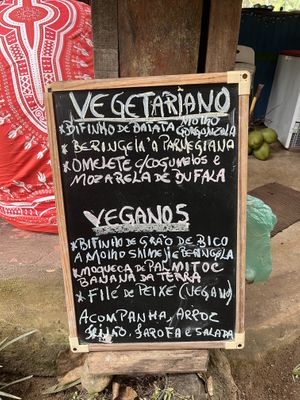 VEGETARIANO
*BIFINHO DE BATATA MOLHO
GORGONZOLA
*BERINGELA À PARMEGIANA
*OMELETE C/COGUMELOS E
MOZARELA DE BUFALA
VEGANOS
*BIFINHO DE GRÃO DE BICO
A MOLHO SHIMEJI E BERINGELA
*MOQUECA DE PALMITO C
BANANA DA TERRA
*FILE DE PEIXE (VEGANO)
ACOMPANHA, ARROZ
FEIJÃO, FAROFA E SALADA